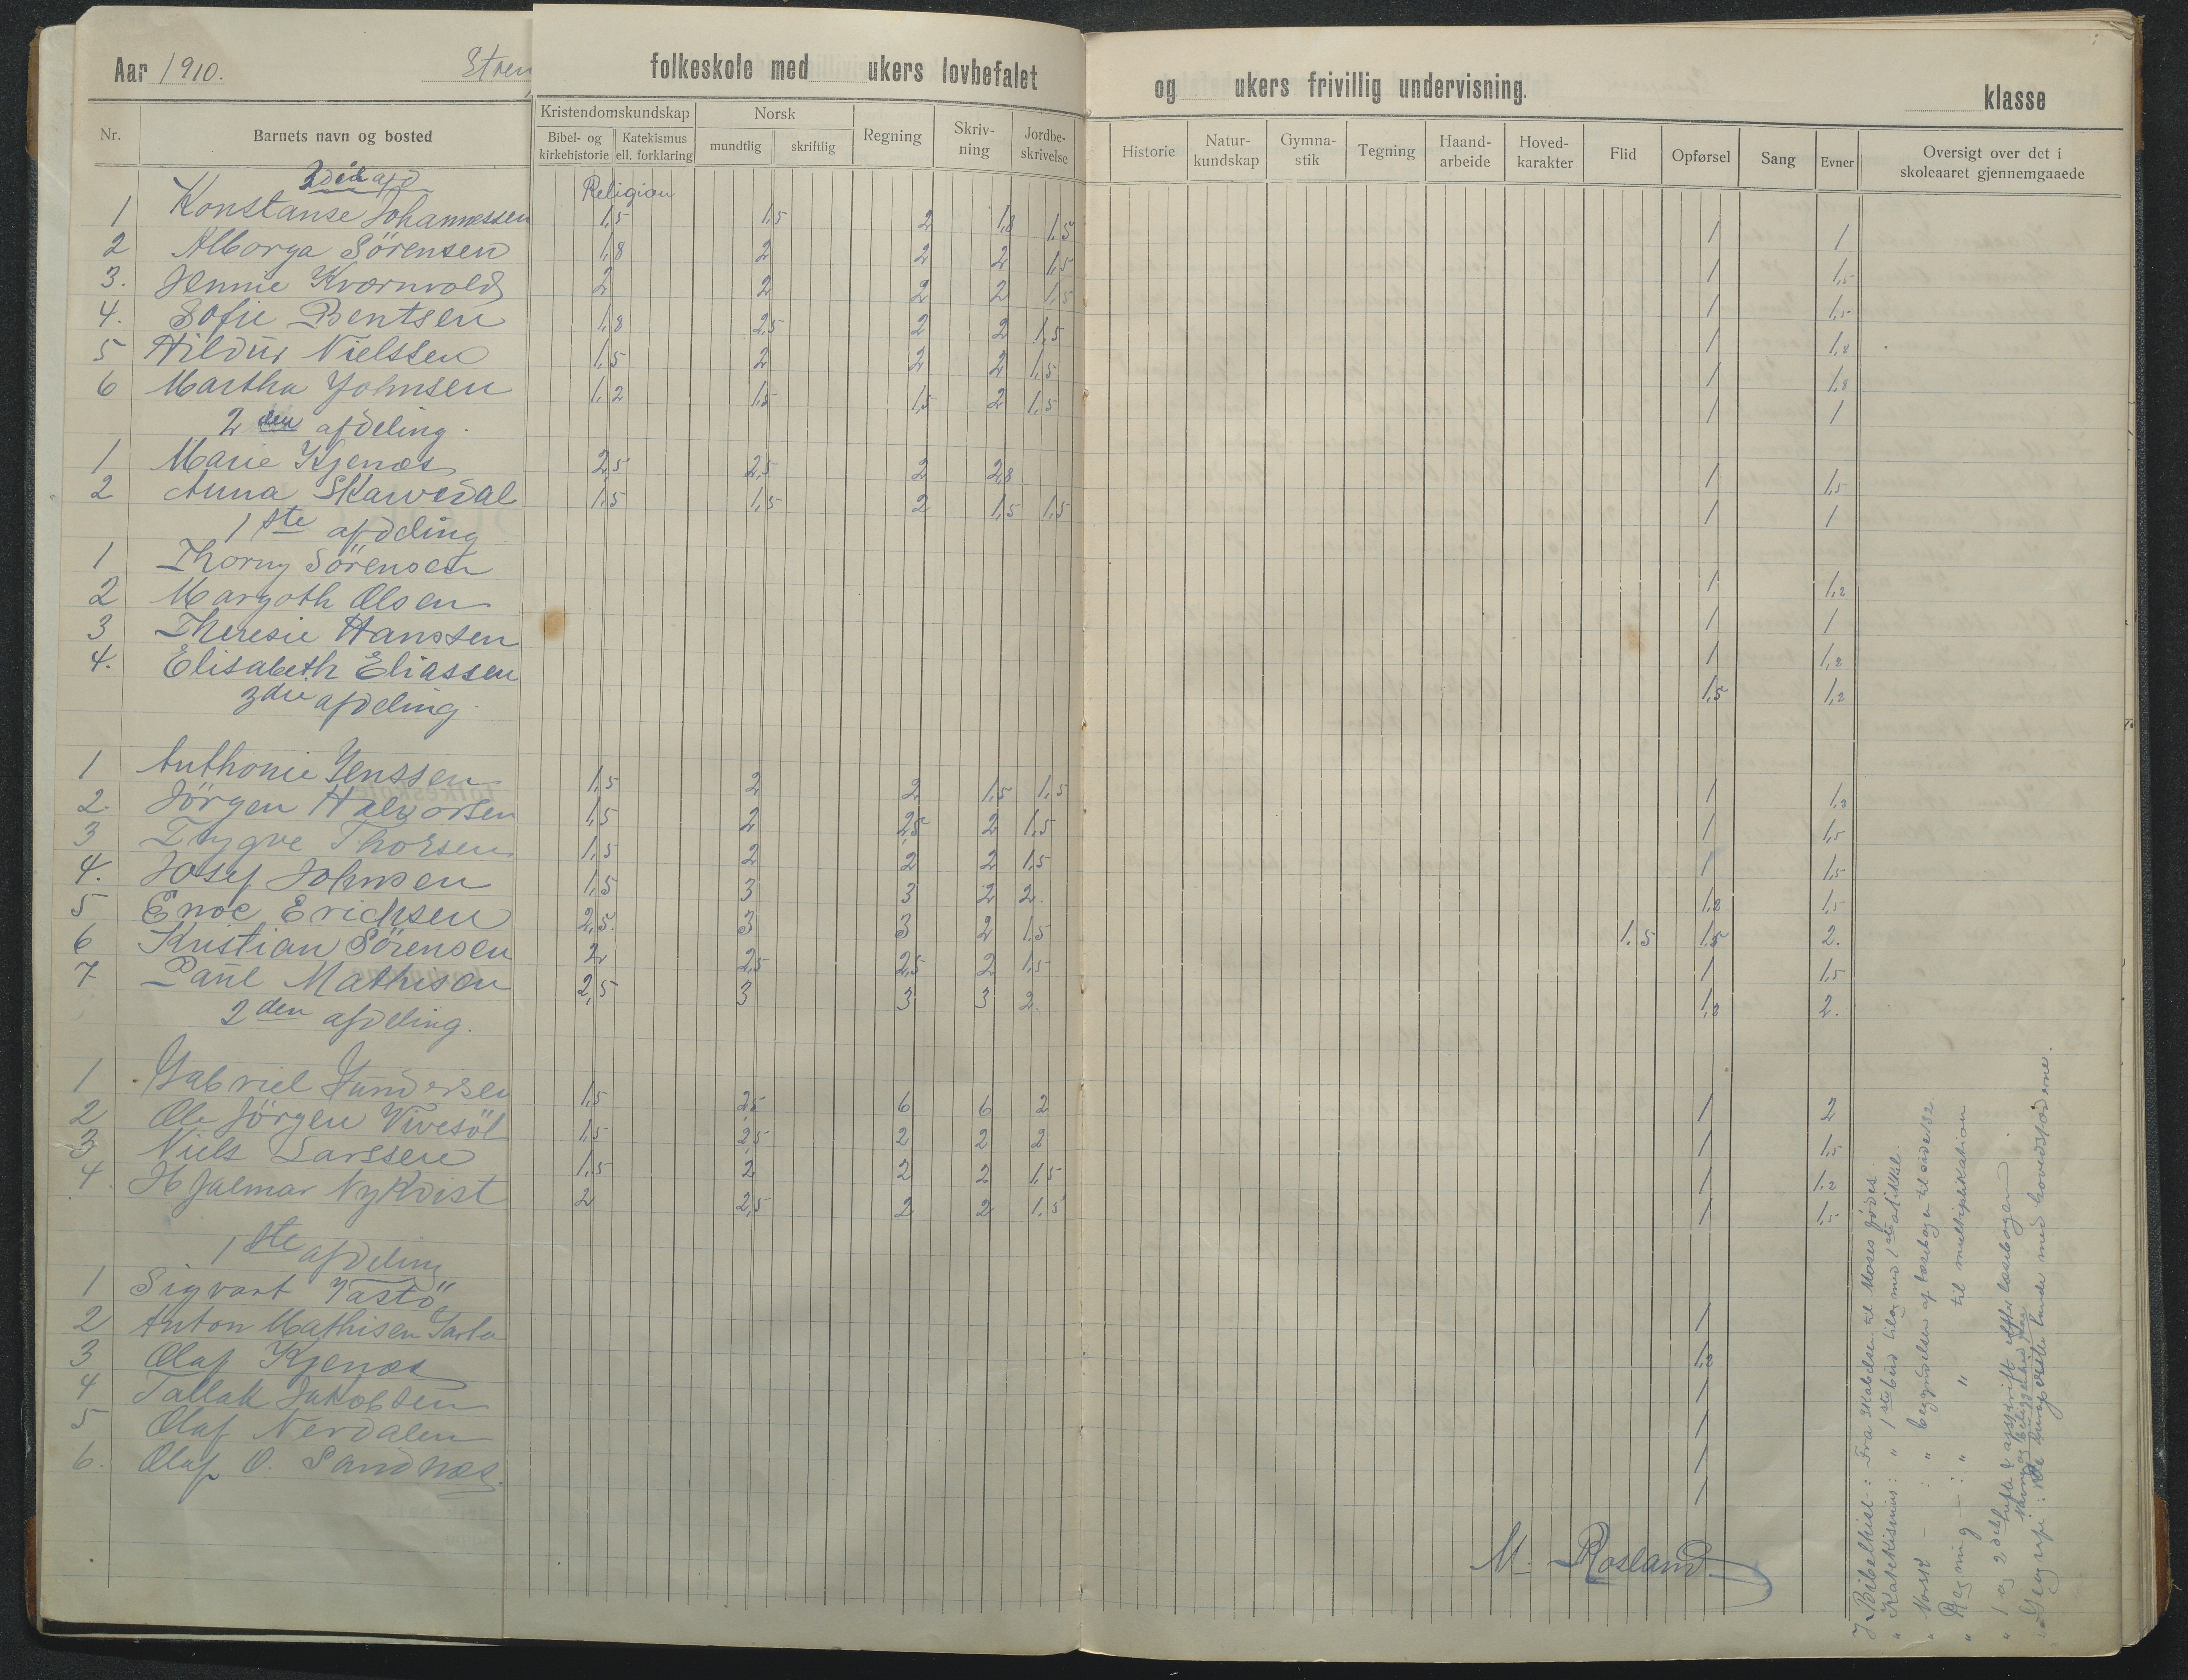 Aar 1910. folkeskole med ukers lovbefalet og ukers frivillig undervisning. klasse
Nr. Barnets navn og bosted Kristendomskundskap Norsk Regning Skriv-ning Jordbe-skrivelse Historie Natur-kundskap Gymna-stik Tegning Haand-arbeide Hoved-karakter Flid Opførsel Sang Evner Oversigt over det i skoleaaret gjennemgaaede
Bibel- og kirkehistorie Katekismus ell. forklaring mundtlig skriftlig
3die afd Religion
1 Konstanse Johannessen 1,5 1,5 2 1,8 1,5 1 1
2 Alborga Sörensen 1,8 2 2 2 1,5 1 1,5
3. Jennie Kvornvold 2 2 2 2 1,5 1 1,5
4. Sofie Bentsen 1,8 2,5 2 2 1,5 1 1,8
5 Hildur Nielssen 1,5 2 2 2 1,5 1 1,8
6 Martha Johnsen 1,2 1,5 1,5 2 1,5 1 1
2den afdeling.
1 Marie Kjenæs 2,5 2,5 2 2,8 1 1,5
2 Anna Skarvedal 1,5 1,5 2 1,5 1,5 1 1
1ste afdeling
1 Thorny Sörensen 1 1,2
2 Margoth Olsen 1 1
3 Theresie Hanssen 1 1,2
4. Elisabeth Eliassen 1,5 1,2
3die afdeling
1 Anthonie Jenssen 1,5 2 2 1,5 1,5 1 1,2
2. Jörgen Halvorsen 1,5 2 2,5 2 1,5 1 1,5
3 Trygve Thorsen 1,5 2 2 2 1,5 1 1,5
4. Josef Johnsen 1,5 3 3 2 2. 1,2 1,5
5 Enoc Erichsen 2,5. 3 3 2 1,5 1,5 1,5 2.
6 Kristian Sörensen 2 2,5 2,5 2 1,5 1 1,5
7 Paul Mathisen 2,5 3 3 3 2. 1,2 2.
2den afdeling.
1 Gabriel Gundersen 1,5 2,5 6 6 2 1 2
2 Ole Jörgen Vivesöl 1,5 2,5 2 2 2 1 1,5
3 Niels Larssen 1,5 2 2 2 1,5 1 1,2
4. Hjalmar Nykvist 2 2,5 2 2 1,5 1 1,5
1ste afdeling
1 Sigvart Tastö 1
2 Anton Mathisen 1,2
3 Olaf Kjenæs 1
4 Tallak Jakobsen 1
5 Olaf Nerdalen 1
6. Olaf O. Sandnæs. 1
M. Rosland
I Bibelhist: Fra skabelsen til Moses födes.
" Katekismus: " 1ste bud til og med 1ste artikkel.
" Norsk - : " begyndelsen af læsebogen til side 132.
" Regning - : " " til multiplikation
" 1 og 2 afskrift efter læsebogen
" Geografi: De europæiske lande med hovedstæderne.